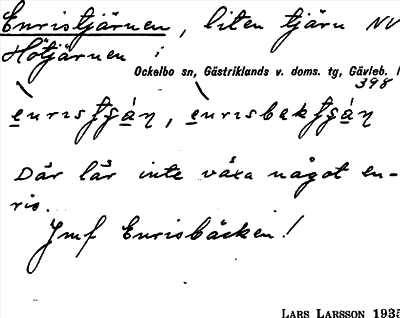 Enristjärnen, liten tjärn NV
Hötjärnen i
Ockelbo sn, Gästriklands v. doms. tg, Gävleb. l
398
Där lär inte växa något en-
ris.
Jmf Enrisbäcken!
LARS LARSSON 1935